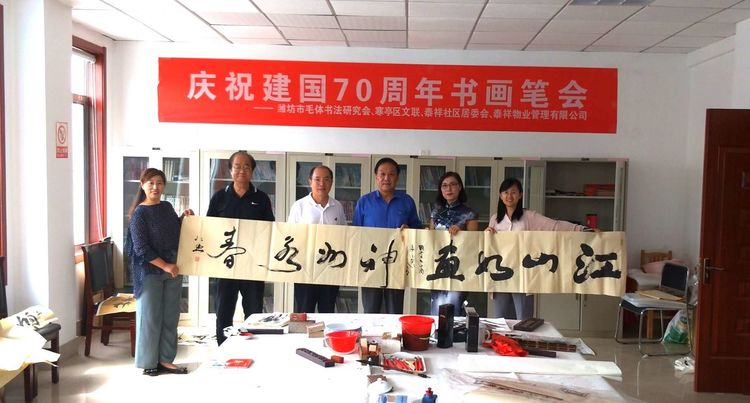 庆祝建国70周年书画笔会
—— 潍坊市毛体书法研究会、寒亭区文联、泰祥社区居委会、泰祥物业管理有限公司
江山如画
神州永春